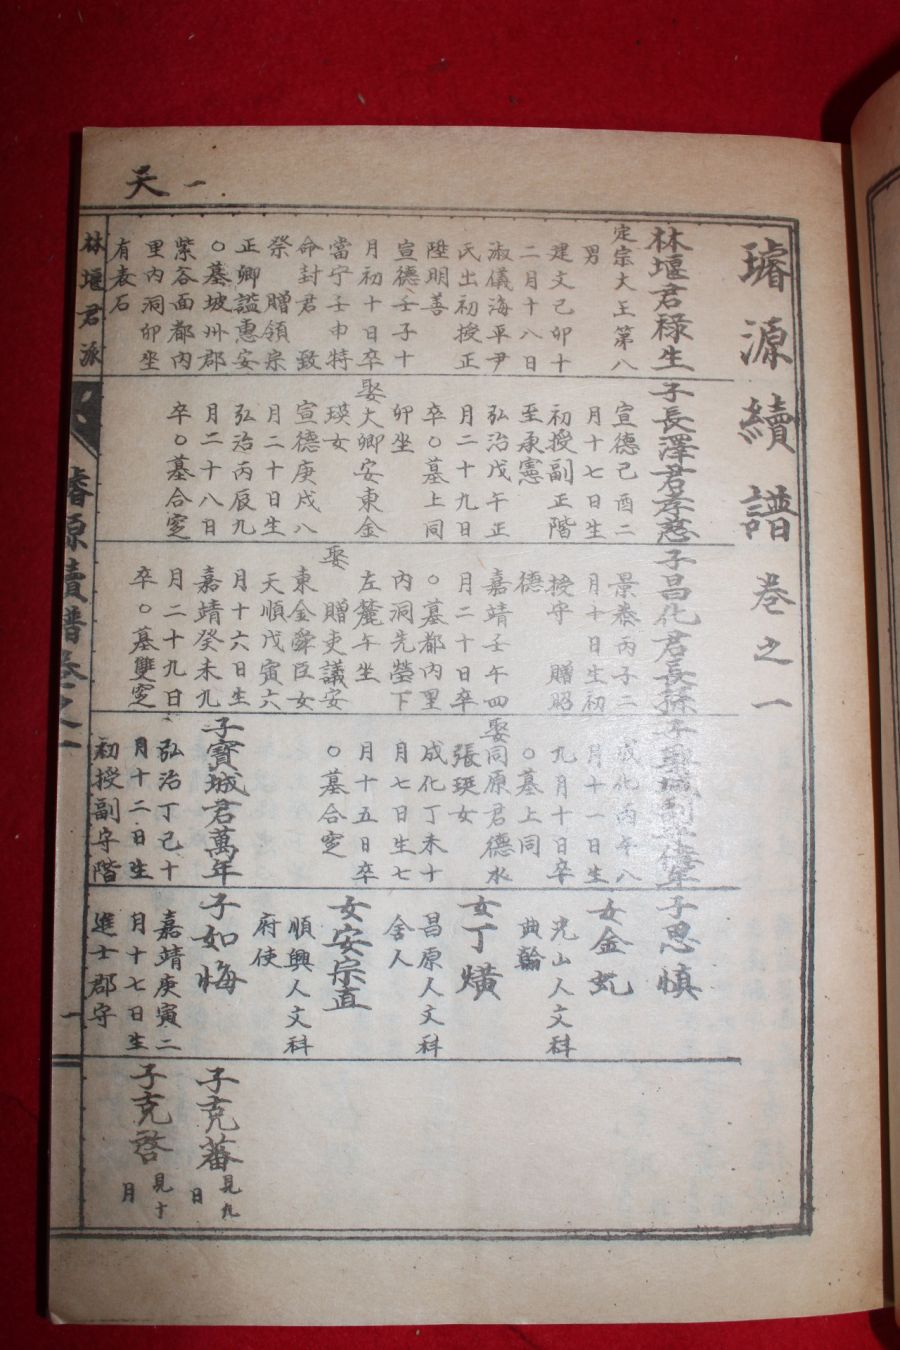 天一
璿源續譜卷之一
林堰君祿生
定宗大王第八
男
建文己卯十
二月十八日
淑儀海平尹
氏出初授正
陞明善
宣德壬子十
月初十日卒
當宁壬申特
命封君 致
祭 贈領宗
正卿諡惠安
○墓坡州郡
紫谷面都內
里內洞卯坐
有表石
子長澤君孝慈
宣德己酉二
月十七日生
初授副正階
至承憲
弘治戊午正
月二十九日
卒○墓上同
卯坐
娶大卿安東金
瑛女
宣德庚戌八
月二十日生
弘治丙辰九
月二十八日
卒○墓合窆
子昌化君長孫
景泰丙子二
月十日生初
授守 贈昭
德
嘉靖壬午四
月二十日卒
○墓都內里
內洞先塋下
左麓午坐
娶 贈吏議安
東金舜臣女
天順戊寅六
月十六日生
嘉靖癸未九
月二十九日
卒○墓雙窆
成化丙午八
月十一日生
九月十日卒
○墓上同
娶同原君德水
張瑛女
成化丁未十
月七日生七
月十五日卒
○墓合窆
子寶城君萬年
弘治丁巳十
月十二日生
初授副守階
子思愼
女金虬
光山人文科
典翰
女丁熿
昌原人文科
舍人
女安宗直
順興人文科
府使
子如晦
嘉靖庚寅二
月十七日生
進士郡守
子克蕃
見九
日
子克啓
見十
月
林堰君派
璿源續譜卷之一
一